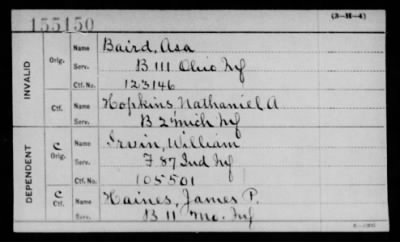 155150
(3-H-4)
INVALID
Orig. Name Baird, Asa
Serv. B 111 Ohio Inf
Ctf. No. 123146
Ctf. Name Hopkins, Nathaniel A
Serv. B 2 Mich Inf
DEPENDENT
C Orig. Name Irwin, William
Serv. F 87 Ind Inf
Ctf. No. 105501
C Ctf. Name Haines, James P.
Serv. B 11 Mo. Inf